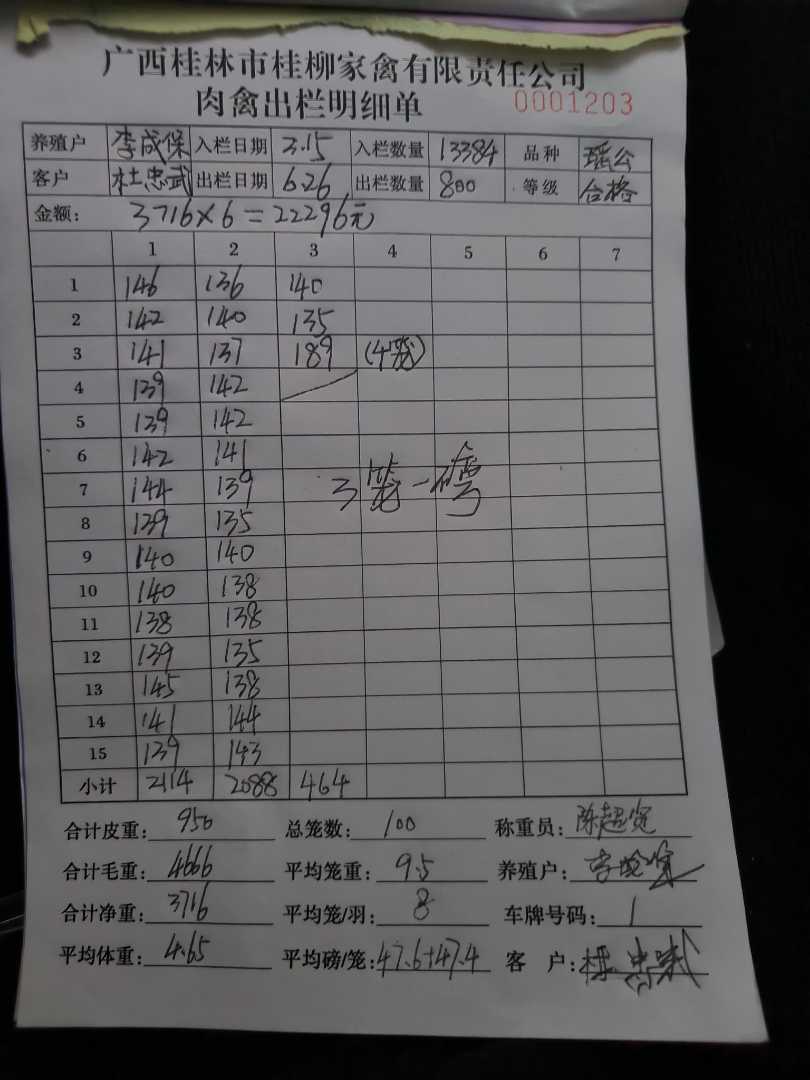 广西桂林市桂柳家禽有限责任公司
肉禽出栏明细单 0001203
养殖户 李成保 入栏日期 3.15 入栏数量 13384 品种 瑶公
客户 杜忠武 出栏日期 6.26 出栏数量 800 等级 合格
金额: 3716×6=22296元
1 2 3 4 5 6 7
1 146 136 140
2 142 140 135
3 141 137 189 (4笼)
4 139 142
5 139 142
6 142 141
7 144 139 3笼一磅
8 139 135
9 140 140
10 140 138
11 138 138
12 139 135
13 145 138
14 141 144
15 139 143
小计 2114 2088 464
合计皮重: 950 总笼数: 100 称重员: 陈超
合计毛重: 4666 平均笼重: 9.5 养殖户:
合计净重: 3716 平均笼/羽: 8 车牌号码: 1
平均体重: 4.65 平均磅/笼: 47.6+47.4 客 户: 杜忠武